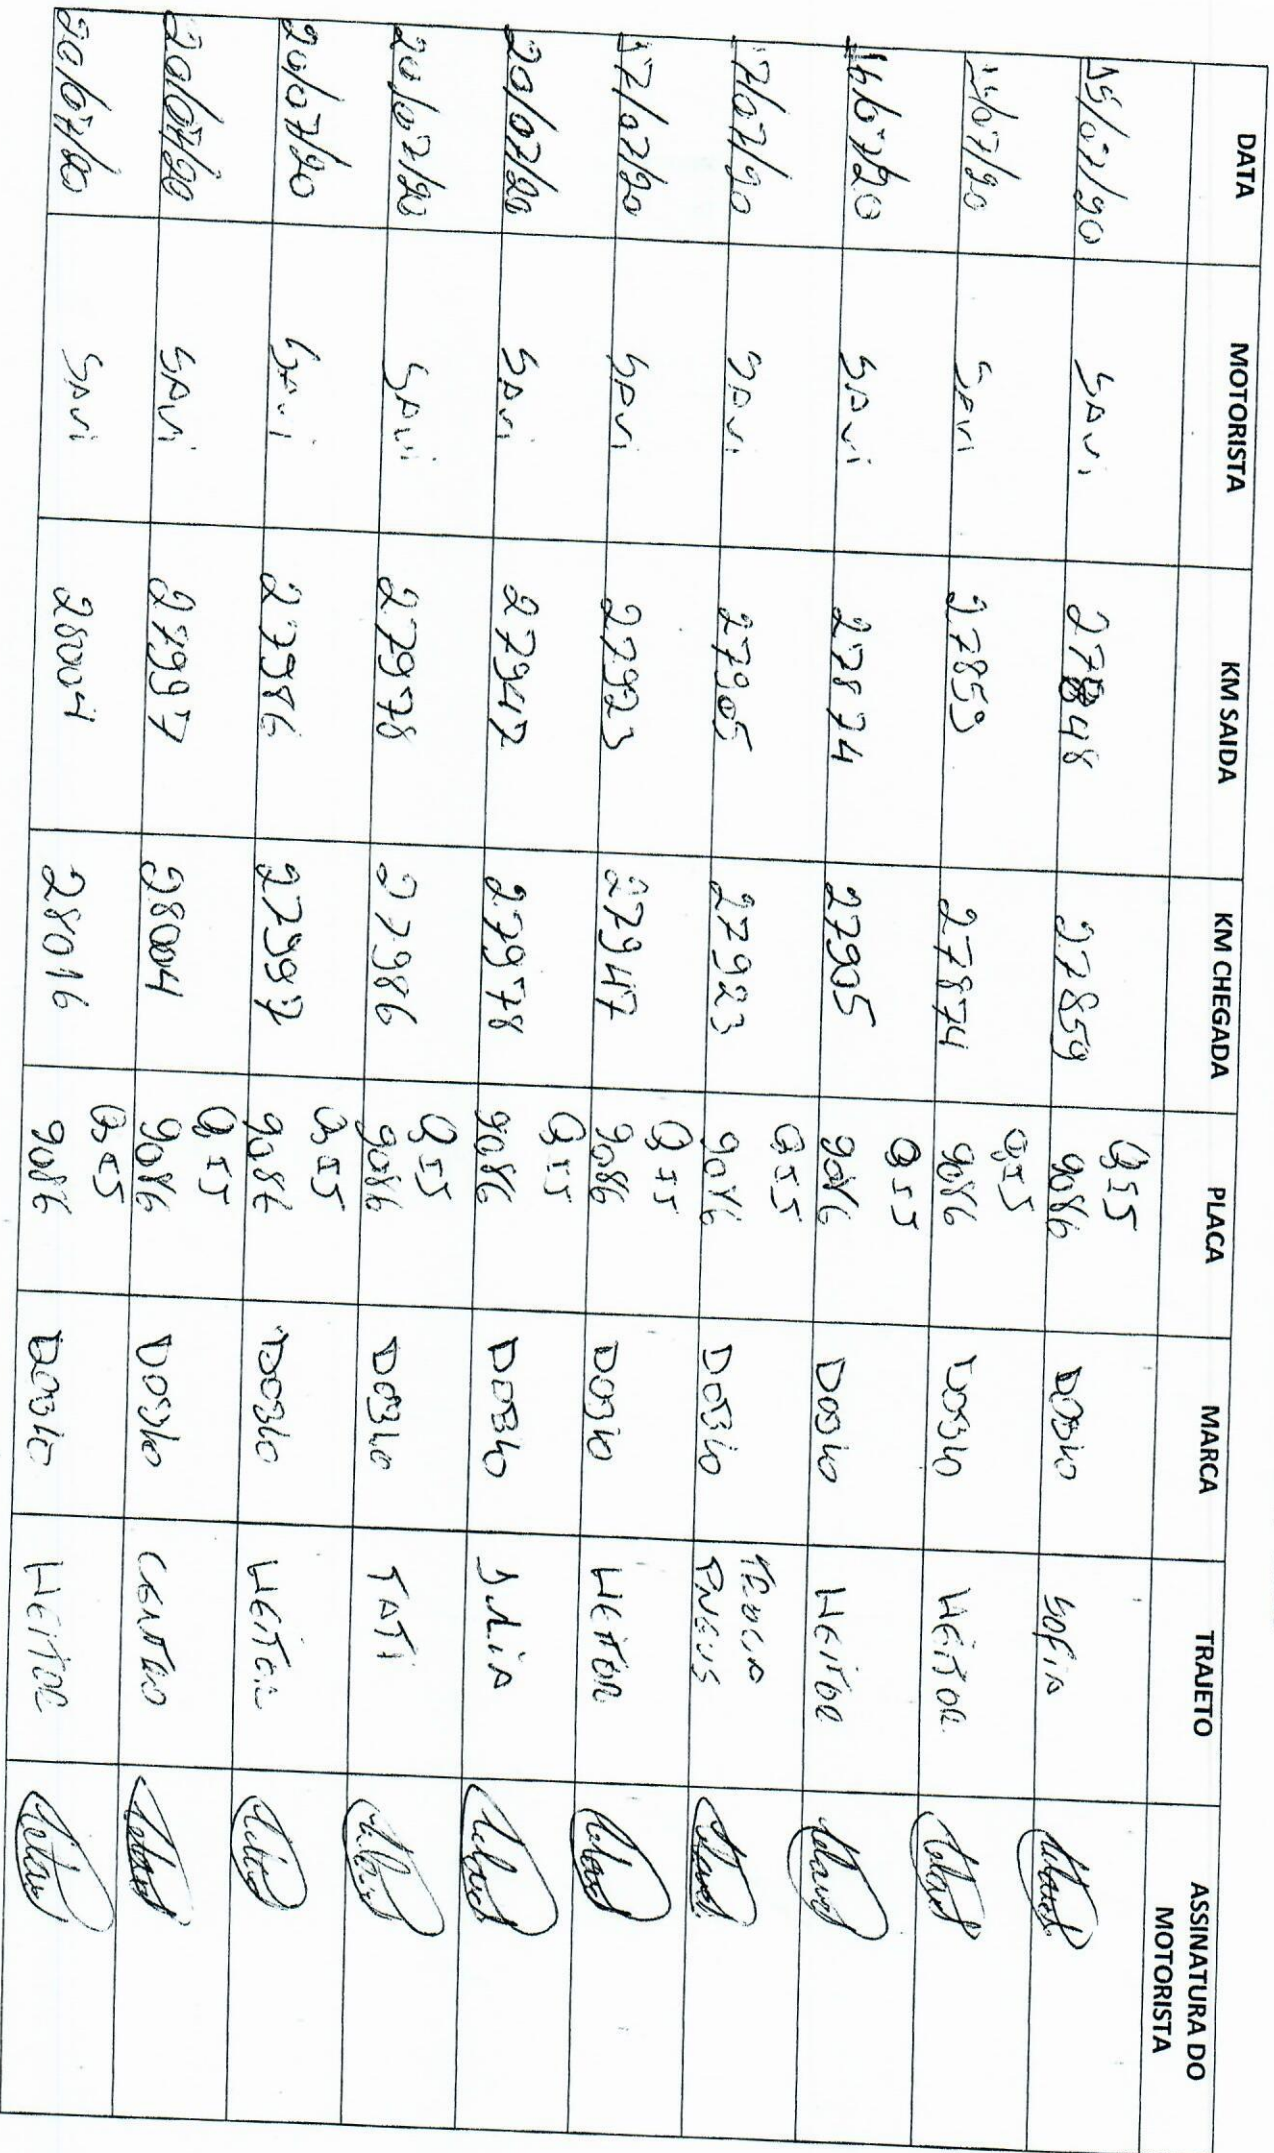 DATA MOTORISTA KM SAIDA KM CHEGADA PLACA MARCA TRAJETO ASSINATURA DO MOTORISTA
15/07/20 SAVI 27848 27859 QIJ 9086 DOBLO SOFIA
/07/20 SAVI 27859 27874 QIJ 9086 DOBLO HEITOR
16/07/20 SAVI 27874 27905 QIJ 9086 DOBLO HEITOR
17/07/20 SAVI 27905 27923 QIJ 9086 DOBLO TROCA PNEUS
17/07/20 SAVI 27923 27947 QIJ 9086 DOBLO HEITOR
20/07/20 SAVI 27947 27978 QIJ 9086 DOBLO JULIA
20/07/20 SAVI 27978 27986 QIJ 9086 DOBLO TATI
20/07/20 SAVI 27986 27997 QIJ 9086 DOBLO HEITOR
20/07/20 SAVI 27997 28004 QIJ 9086 DOBLO CENTRO
20/07/20 SAVI 28004 28016 QIJ 9086 DOBLO HEITOR